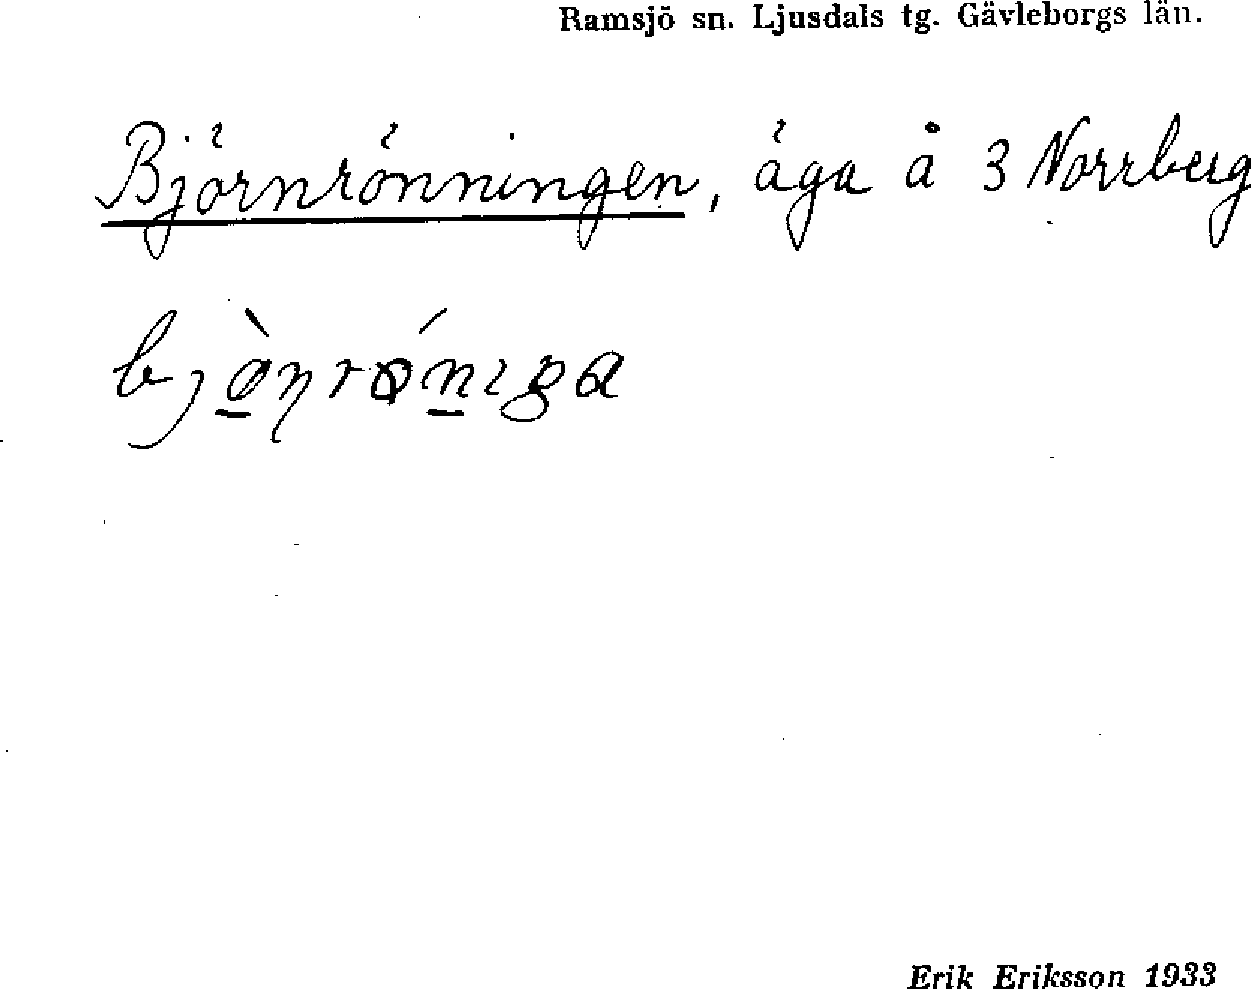 Ramsjö sn. Ljusdals tg. Gävleborgs län.
Björnrönningen, äga å 3 Norrberg
Erik Eriksson 1933